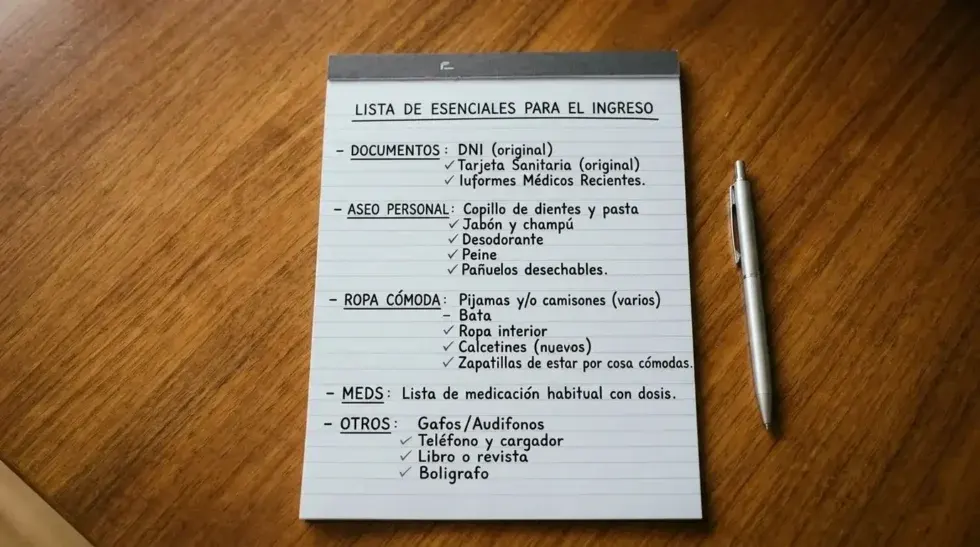 LISTA DE ESENCIALES PARA EL INGRESO
- DOCUMENTOS: DNI (original)
✓ Tarjeta Sanitaria (original)
✓ Iuformes Médicos Recientes.
- ASEO PERSONAL: Copillo de dientes y pasta
✓ Jabón y champú
✓ Desodorante
✓ Peine
✓ Pañuelos desechables.
- ROPA CÓMODA: Pijamas y/o camisones (varios)
- Bata
✓ Ropa interior
✓ Calcetines (nuevos)
✓ Zapatillas de estar por cosa cómodas.
- MEDS: Lista de medicación habitual con dosis.
- OTROS: Gafos/Audifonos
✓ Teléfono y cargador
✓ Libro o revista
✓ Boligrafo